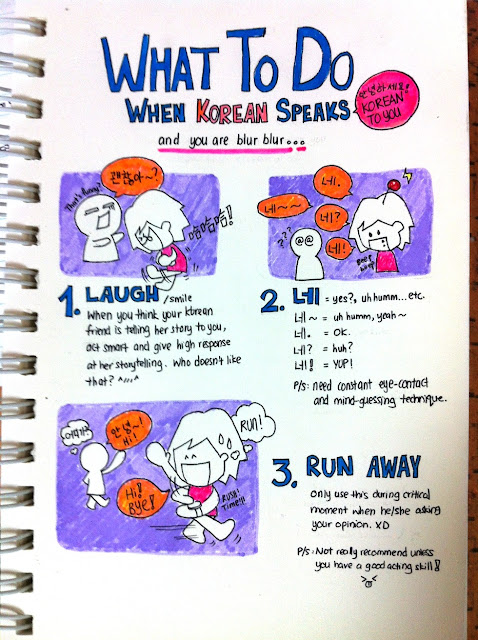 WHAT TO DO
WHEN KOREAN SPEAKS
안녕하세요!
KOREAN
TO YOU
and you are blur blur...
That's funny?
괜찮아~?
哈哈哈!
1. LAUGH /smile
When you think your korean
friend is telling her story to you,
act smart and give high response
at her storytelling. Who doesn't like
that? ^^
네.
네~~
네?
네!
???
@@
beep
beep
2. 네 = yes?, uh humm... etc.
네~ = uh humm, yeah~
네. = OK.
네? = huh?
네! = YUP!
P/s: need constant eye-contact
and mind-guessing technique.
어디가?
안녕~!
Hi!
RUN!
Hi!
Bye!
RUSH
TIME!!!
3. RUN AWAY
only use this during critical
moment when he/she asking
your opinion. XD
P/s: Not really recommend unless
you have a good acting skill!